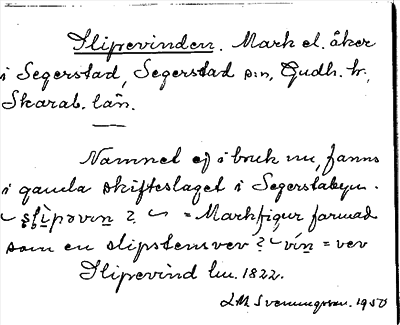 Slipevinden. Mark el. åker
i Segerstad, Segerstad sn, Gudh. hr,
Skarab. län.
Namnet ej i bruk nu, fanns
i gamla skifteslaget i Segerstabyn.
~ ? ~ = Markfigur formad
som en slipstensvev? ~ vin = vev
Slipevind lm. 1822.
Svenungsson. 1950